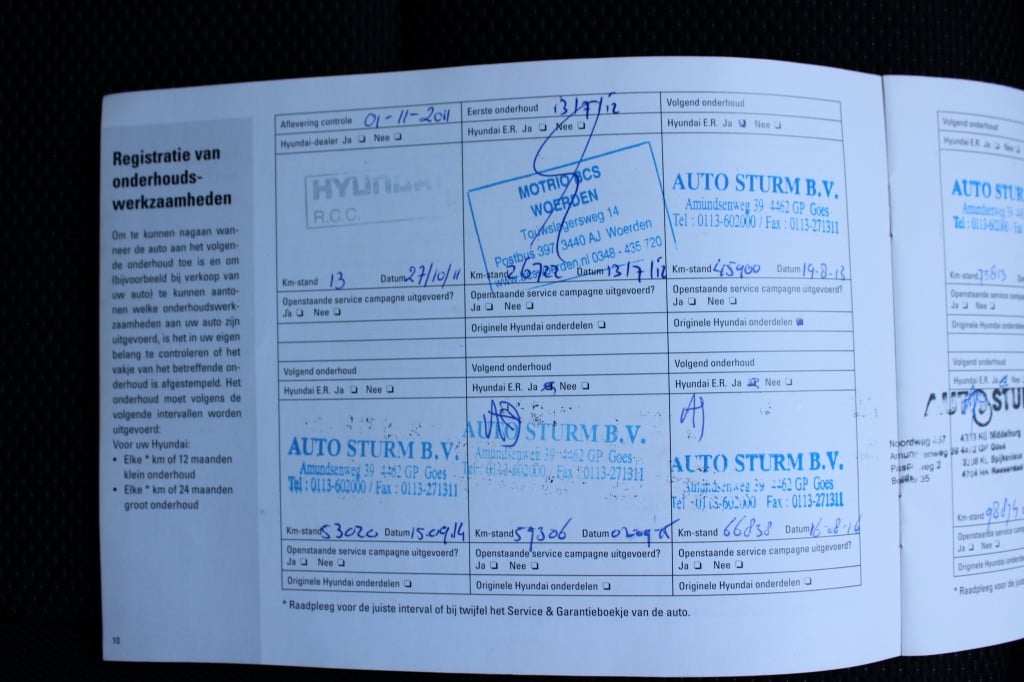 Registratie van
onderhouds-
werkzaamheden
Om te kunnen nagaan wan-
neer de auto aan het volgen-
de onderhoud toe is en om
(bijvoorbeeld bij verkoop van
uw auto) te kunnen aanto-
nen welke onderhoudswerk-
zaamheden aan uw auto zijn
uitgevoerd, is het in uw eigen
belang te controleren of het
vakje van het betreffende on-
derhoud is afgestempeld. Het
onderhoud moet volgens de
volgende intervallen worden
uitgevoerd:
Voor uw Hyundai:
• Elke * km of 12 maanden
klein onderhoud
• Elke * km of 24 maanden
groot onderhoud
10
Aflevering controle 01-11-2011
Hyundai-dealer Ja ❏ Nee ❏
HYUNDAI
R.C.C.
Km-stand 13 Datum 27/10/11
Openstaande service campagne uitgevoerd?
Ja ❏ Nee ❏
Eerste onderhoud 13/7/12
Hyundai E.R. Ja ❏ Nee ❏
MOTRIO BCS
WOERDEN
Touwslagersweg 14
Postbus 397 3440 AJ Woerden
0348 - 435 720
Km-stand Datum 13/7/12
Openstaande service campagne uitgevoerd?
Ja ❏ Nee ❏
Originele Hyundai onderdelen ❏
Volgend onderhoud
Hyundai E.R. Ja ❏ Nee ❏
AUTO STURM B.V.
Amundsenweg 39 4462 GP Goes
Tel : 0113-602000 / Fax : 0113-271311
Km-stand 45900 Datum 19-8-13
Openstaande service campagne uitgevoerd?
Ja ❏ Nee ❏
Originele Hyundai onderdelen
Volgend onderhoud
Hyundai E.R. Ja ❏ Nee ❏
AUTO STURM B.V.
Amundsenweg 39 4462 GP Goes
Tel : 0113-602000 / Fax : 0113-271311
Km-stand 53020 Datum 15.09.14
Openstaande service campagne uitgevoerd?
Ja ❏ Nee ❏
Originele Hyundai onderdelen ❏
Volgend onderhoud
Hyundai E.R. Ja Nee ❏
STURM B.V.
Amundsenweg 39 4462 GP Goes
Tel : 0113-602000 / Fax : 0113-271311
Km-stand 59306 Datum
Openstaande service campagne uitgevoerd?
Ja ❏ Nee ❏
Originele Hyundai onderdelen ❏
Volgend onderhoud
Hyundai E.R. Ja Nee ❏
AUTO STURM B.V.
Amundsenweg 39 4462 GP Goes
Tel : 0113-602000 Fax : 0113-271311
Km-stand 66838 Datum 16-08-16
Openstaande service campagne uitgevoerd?
Ja ❏ Nee ❏
Originele Hyundai onderdelen ❏
* Raadpleeg voor de juiste interval of bij twijfel het Service & Garantieboekje van de auto.
Volgend onderhoud
Hyundai E.R. Ja ❏ Nee
AUTO STU
Amundsenweg
Tel : 0113-602
Km-stand 75813
Openstaande service
Ja ❏ Nee ❏
Originele Hyundai
Volgend onderhoud
Hyundai E.R. Ja Nee
STU
Noordweg
4462 GP Goes
Km-stand
Openstaande service
Ja ❏ Nee ❏
Originele Hyundai
* Raadpleeg voor de